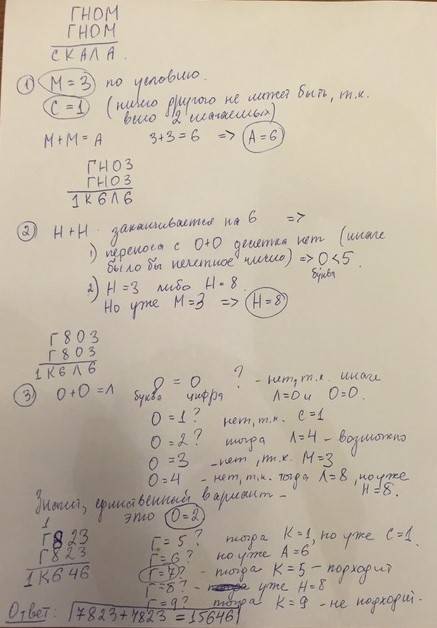 ГНОМ
ГНОМ
СКАЛА.
① М = 3 по условию.
С = 1 (ничто другого не может быть, т.к. всего 2 слагаемых)
М+М = А 3+3=6 => А=6
ГНО3
ГНО3
1К6Л6
② Н+Н заканчивается на 6 =>
1) переноса с О+О десятка нет (иначе
было бы нечетное число) => О<5.
буква
2) Н=3 либо Н=8.
Но уже М=3 => Н=8
Г8О3
Г8О3
1К6Л6
③ О+О=Л О = 0 ? - нет, т.к. иначе
буква цифра Л=0 и О=0.
О = 1? нет, т.к. С=1
О = 2? тогда Л=4 - возможно
О = 3 - нет, т.к. М=3
О = 4 - нет, т.к. тогда Л=8, но уже
Н=8.
Значит, единственный вариант -
это О=2
1
Г823
Г823
1К646
Г=5? тогда К=1, но уже С=1.
Г=6? но уже А=6
Г=7? - тогда К=5 - подходит
Г=8? - уже Н=8
Г=9? тогда К=9 - не подходит.
Ответ: 7823+7823=15646